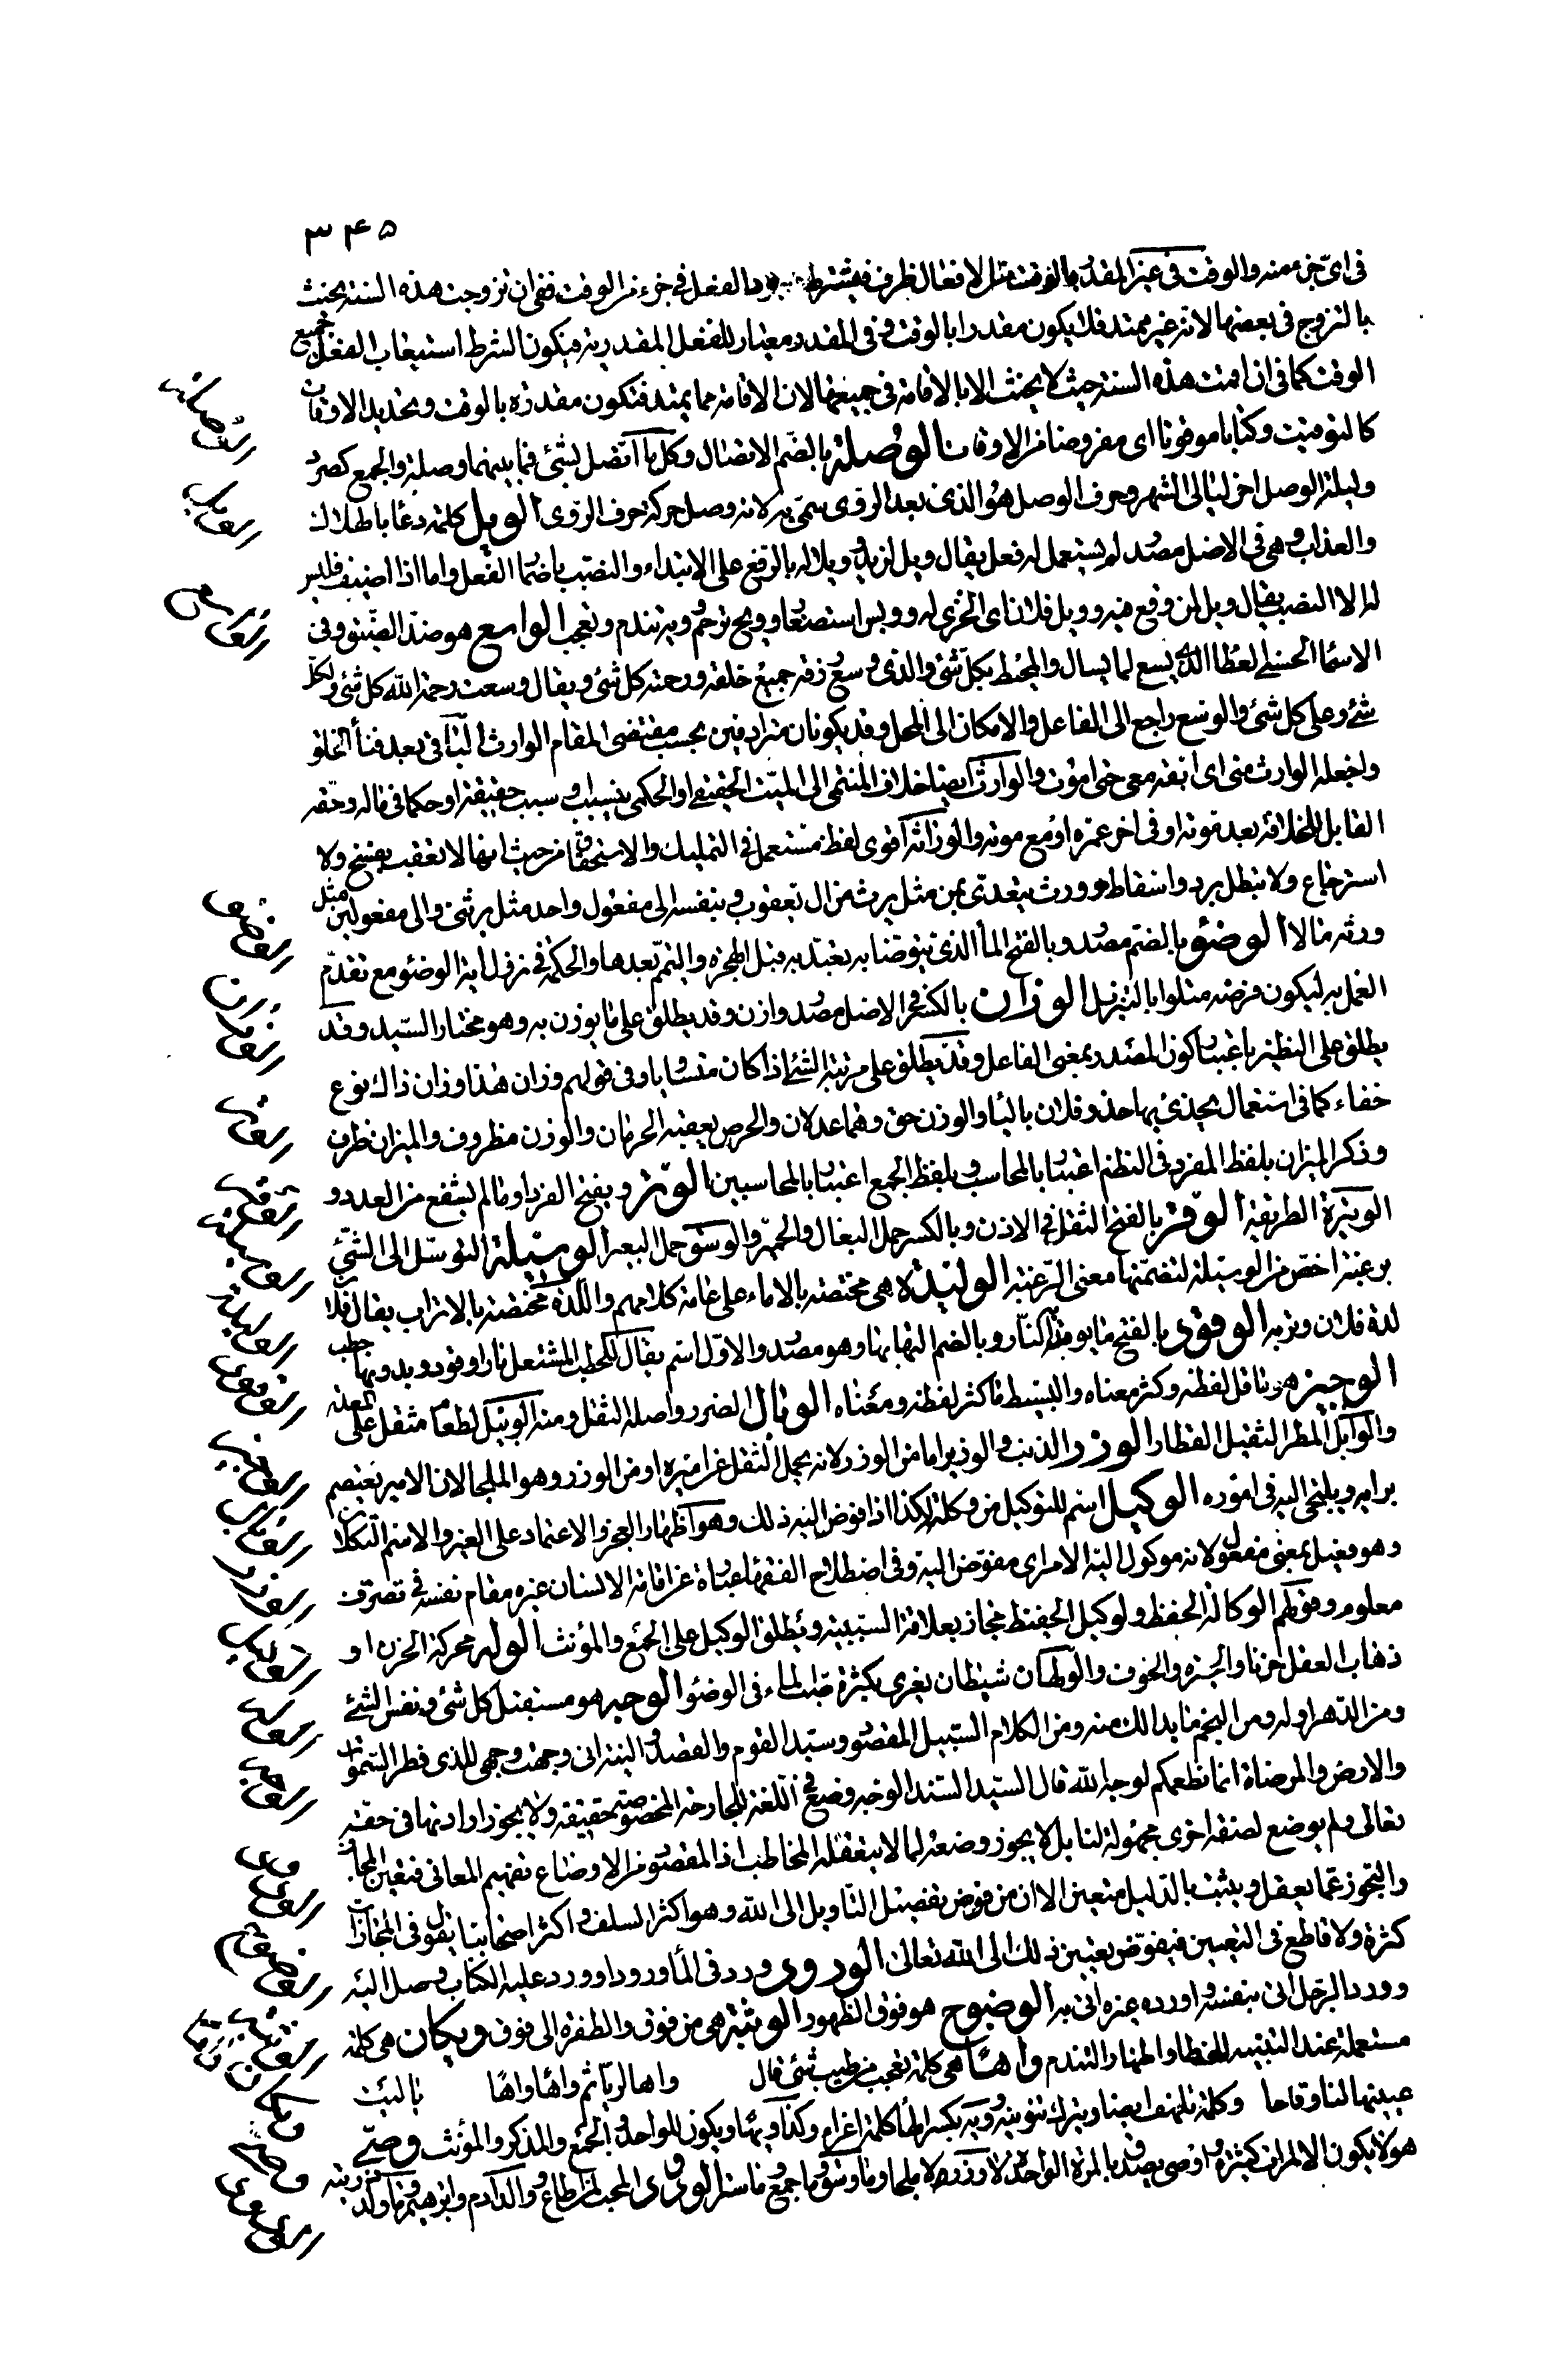 ٣٤٥
فى اىّ جزء منه والوقت فى غير المقدر بالوقت من الافعال ظرف فيشترط وجود الفعل فى جزء من الوقت ففى ان تزوجت هذه السنة يحنث
بالتزوج فى بعضها لانه غير ممتد فلا يكون مقدرا بالوقت وفى المقدر معيار للفعل المقدر به فيكون الشرط استيعاب الفعل جميع
الوقت كما فى ان اقمت هذه السنة حيث لا يحنث الا بالاقامة فى جميعها لان الاقامة مما يمتد فتكون مقدرة بالوقت وتحديد الاوقات
كالتوقيت وكتابا موقوتا اى مفروضا فى الاوقات الوصلة بالضم الاتصال وكل ما اتصل بشئ فما بينهما وصلة والجمع كصرد
وليلة الوصل اخر ليالى الشهر وحرف الوصل هو الذى بعد الروى سمى به لانه وصل حركة حرف الروى الويل كلمة دعاء بالهلاك
والعذاب وهى فى الاصل مصدر لم يستعمل له فعل يقال ويل لزيد وويلا له بالرفع على الابتداء والنصب باضمار الفعل واما اذا اضيف فليس
له الا النصب يقال ويل لمن وقع فيه وويل فلان اى الخزى له وويس استصغار وويح ترحم وويه تندم وتعجب الواسع هو ضد الضيق وفى
الاسماء الحسنى العطاء الذى يسع لما يسأل والمحيط بكل شئ والذى وسع رزقه جميع خلقه ورحمته كل شئ ويقال وسعت رحمة الله كل شئ ولكل
شئ وعلى كل شئ والوسع راجع الى الفاعل والامكان الى المحل وقد يكونان مترادفين بحسب مقتضى المقام الوارث الباقى بعد فناء الخلق
واجعله الوارث منى اى ابقه معى حتى اموت والوارث ايضا خلاف المنتمى الى الميت الحقيقى او الحكمى بنسب او سبب حقيقة او حكما فى ماله وحقه
القابل للخلافة بعد موته او فى اخر عمره او مع موته والوراثة اقوى لفظ مستعمل فى التمليك والاستحقاق من حيث انها لا تعقب بفسخ ولا
استرجاع ولا تبطل برد واسقاط وورث يتعدى بمن مثل يرث من ال يعقوب وبنفسه الى مفعول واحد مثل يرثنى والى مفعولين مثل
ورثه مالا الوضوء بالضم مصدر وبالفتح الماء الذى يتوضأ به تعبد به قبل الهجرة والتيمم بعدها والحكمة فى نزول اية الوضوء مع تقدم
العمل به ليكون فرضه متلوا بالتنزيل الوزان بالكسر فى الاصل مصدر وازن وقد يطلق على ما يوزن به وهو مختار السيد وقد
يطلق على النظير باعتبار كون المصدر بمعنى الفاعل وقد يطلق على مرتبة الشئ اذا كان متساويا وفى قولهم وزان هذا وزان ذاك نوع
خفاء كما فى استعمال يحذى بها حذو فلان بالباء والوزن حق وهما عدلان والحرص يعقبه الحرمان والوزن مظروف والميزان ظرف
وذكر الميزان بلفظ المفرد فى النظم اعتبارا بالمحاسب وبلفظ الجمع اعتبارا بالمحاسبين الوتر ويفتح الفرد او ما لم يشفع من العدد و
الوتيرة الطريقة الوقر بالفتح الثقل فى الاذن وبالكسر حمل البغال والحمير والوسق حمل البعير الوسيلة التوسل الى الشئ
برغبة اخص من الوصيلة لتضمنها معنى الرغبة الوليدة هى مختصة بالاماء على عامة كلامهم واللدة مختصة بالاتراب يقال فلان
لدة فلان وتربه الوقود بالفتح ما يوقد به النار وبالضم التهابها وهو مصدر والاول اسم يقال للحطب المشتعل نارا وقود وبدونها حطب
الوجيز هو ما قل لفظه وكثر معناه والبسيط ما كثر لفظه ومعناه الوبال الضرر واصله الثقل ومنه الوبيل لطعام مثقل على المعدة
والوابل المطر الثقيل القطار الوزر الذنب والوزير اما من الوزر لانه يحمل الثقل عن اميره او من الوزر وهو الملجأ لان الامير يعتصم
برايه ويلتجئ اليه فى اموره الوكيل اسم للتوكيل من وكلته بكذا اذا فوض اليه ذلك وهو اظهار العجز والاعتماد على الغير والاسم التكلان
وهو فعيل بمعنى مفعول لانه موكول اليه الامر اى مفوض اليه وفى اصطلاح الفقهاء عبارة عن اقامة الانسان غيره مقام نفسه فى تصرف
معلوم وقولهم الوكالة الحفظ والوكيل الحفيظ مجاز بعلاقة السببية ويطلق الوكيل على الجمع والمؤنث الوله محركة الحزن او
ذهاب العقل حزنا والحيرة والخوف والولهان شيطان يغرى بكثرة صب الماء فى الوضوء الوجه هو مستقبل كل شئ ونفس الشئ
ومن الدهر اوله ومن النجم ما بدا لك منه ومن الكلام السبيل المقصود وسيد القوم والقصد والنية انى وجهت وجهى للذى فطر السموات
والارض والمرضاة انما نطعمكم لوجه الله قال السيد السند الوجه وضع فى اللغة للجارحة المخصوصة حقيقة ولا يجوز ارادتها فى حقه
تعالى ولم يوضع لصفة اخرى مجهولة لنا بل لا يجوز وضعه لما لا يتعقله المخاطب اذ المقصود من الاوضاع تفهيم المعانى فتعين المجاز
والتجوز عما يعقل ويثبت بالدليل متعين الا ان من فوض تفصيل التاويل الى الله وهو اكثر السلف واكثر اصحابنا يقول فى المجازات
كثرة ولا قاطع فى التعيين فيفوض تعيين ذلك الى الله تعالى الورود ورد فى الماء ورودا وورد عليه الكتاب وصل اليه
وورد الرجل اتى بنفسه واورده غيره اتى به الوضوح هو فوق الظهور الوثبة هى من فوق والطفرة الى فوق ويكان هى كلمة
مستعملة عند التنبيه للخطاء واظهار التندم واها هى كلمة تعجب من طيب شئ قال واها لريا ثم واها واها يا ليت
عينيها لنا وفاها وكلمة تلهف ايضا ويترك تنوينه وويه بكسر الهاء كلمة اغراء وكذا ويها ويكون للواحد والجمع والمذكر والمؤنث وصى
هو لا يكون الا لمرات كثيرة واوصى يصدق بالمرة الواحدة لا وزر لا ملجأ وما وسق وما جمع وما ستر الودود المحب لمن اطاع ووالد ادم وابرهيم وما ولد ذريته